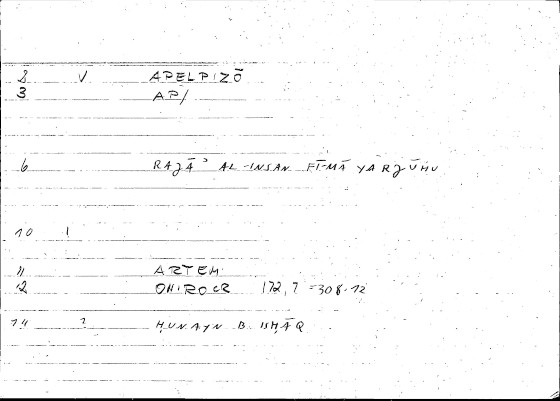 2 V APELPIZŌ
3 AP/
6 RAJĀʾ AL-INSAN FĪ-MĀ YARJŪHU
10 1
11 ARTEM
12 ONIROCR 172,7 = 308.12
14 ? ḤUNAYN B. ISḤĀQ